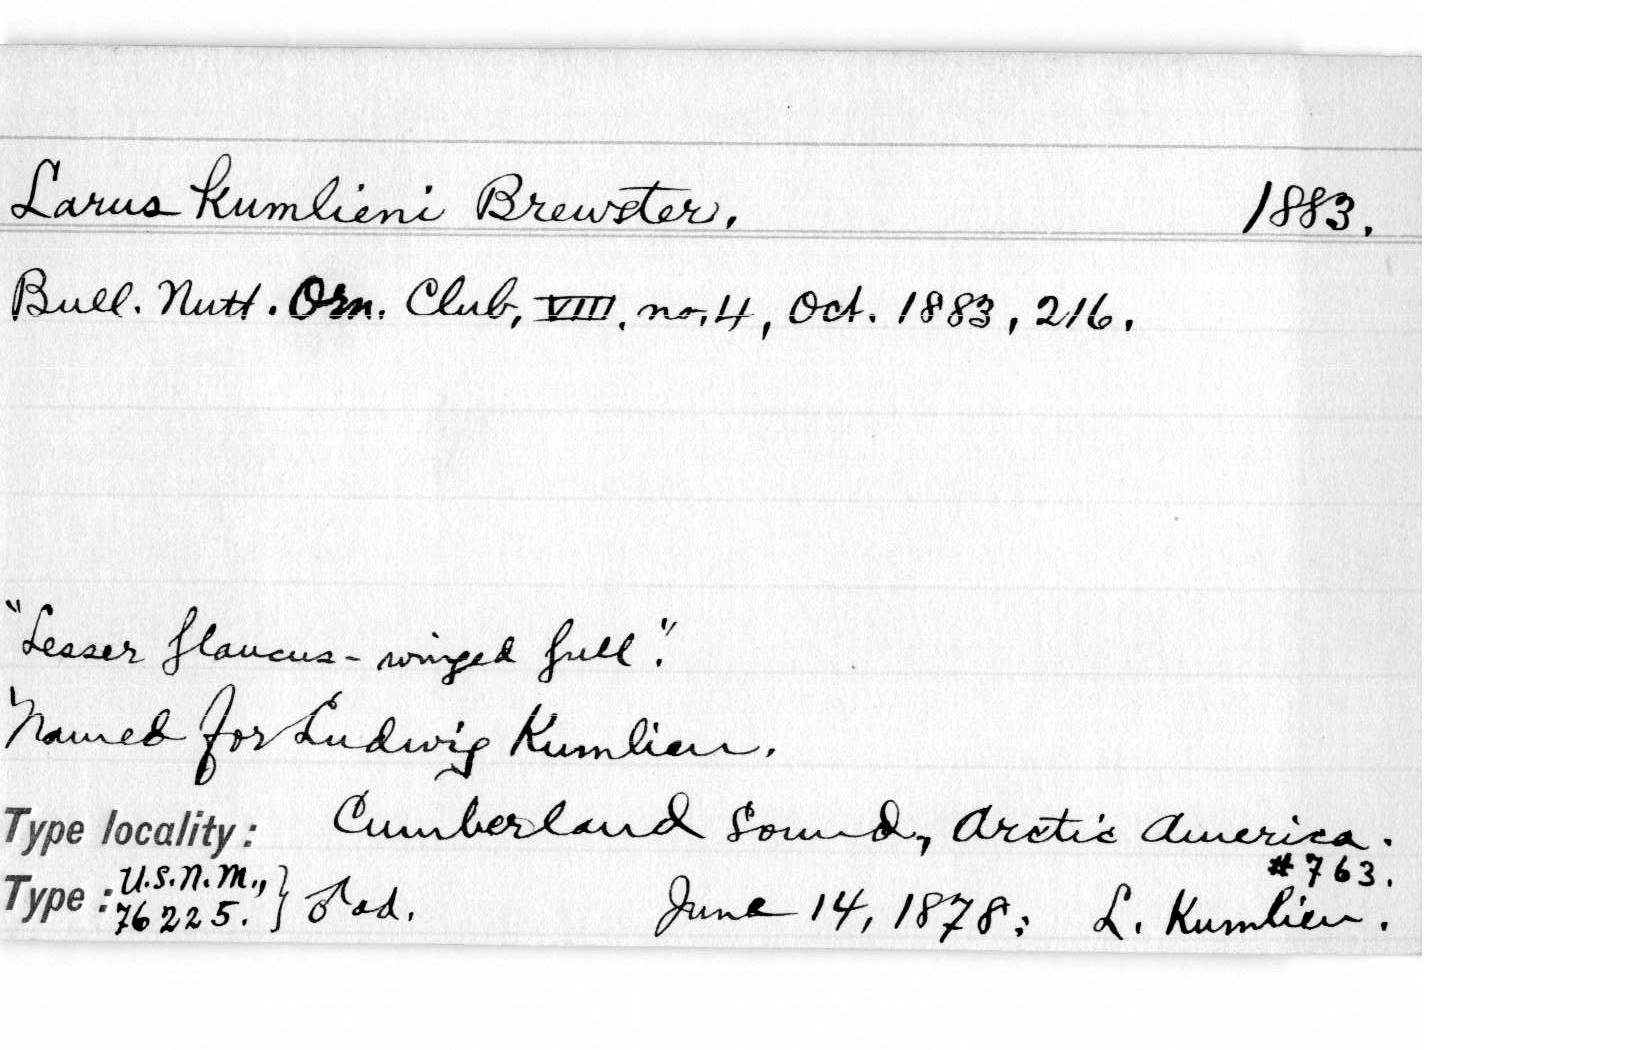 Larus kumlieni Brewster. 1883.
Bull. Nutt. Orn. Club, VIII, no. 4, Oct. 1883, 216.
"Lesser glaucus-winged gull".
Named for Ludwig Kumlien.
Type locality: Cumberland Sound, Arctic America.
#763.
Type: U.S.N.M., 76225. } ♂ ad. June 14, 1878; L. Kumlien.